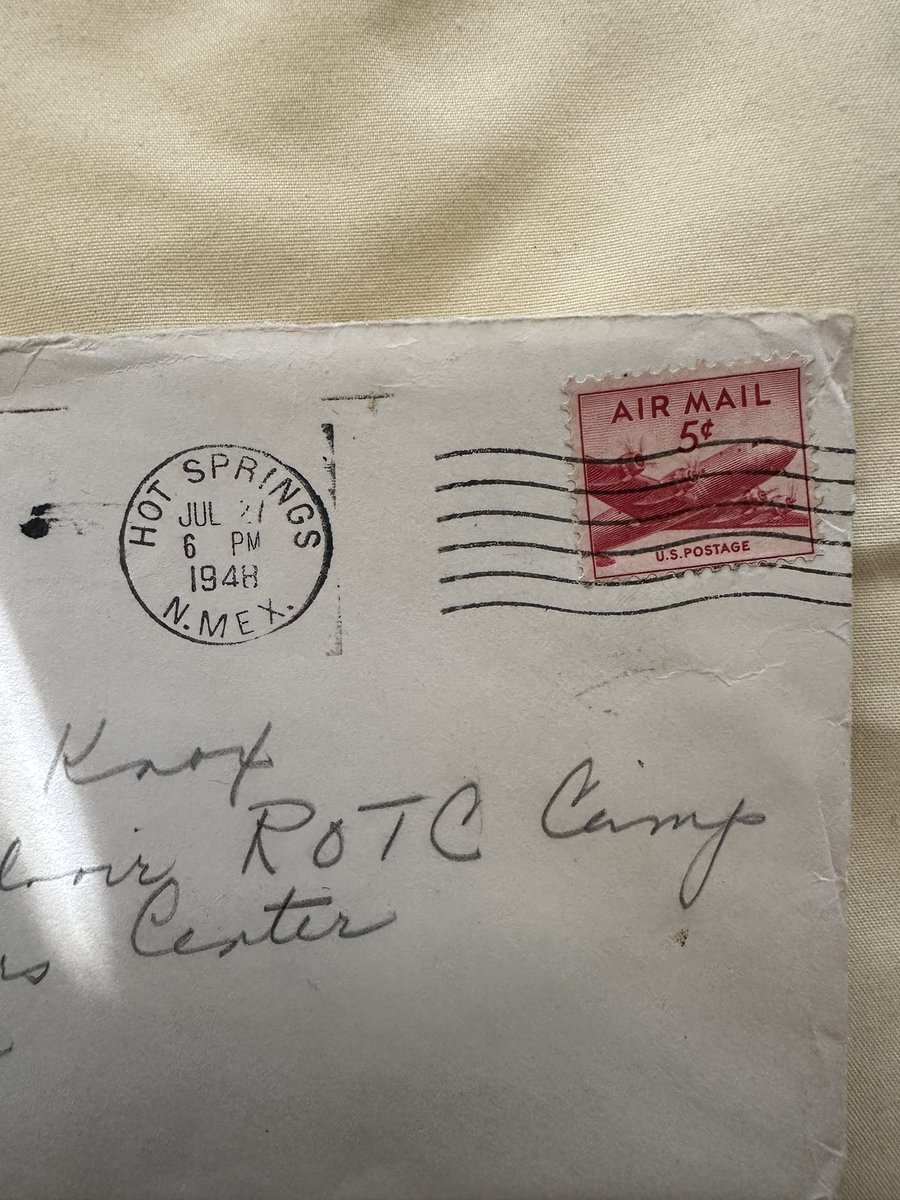 HOT SPRINGS
JUL 27
6 PM
1948
N. MEX.
AIR MAIL
5¢
U.S. POSTAGE
Knox
ROTC Camp
Center